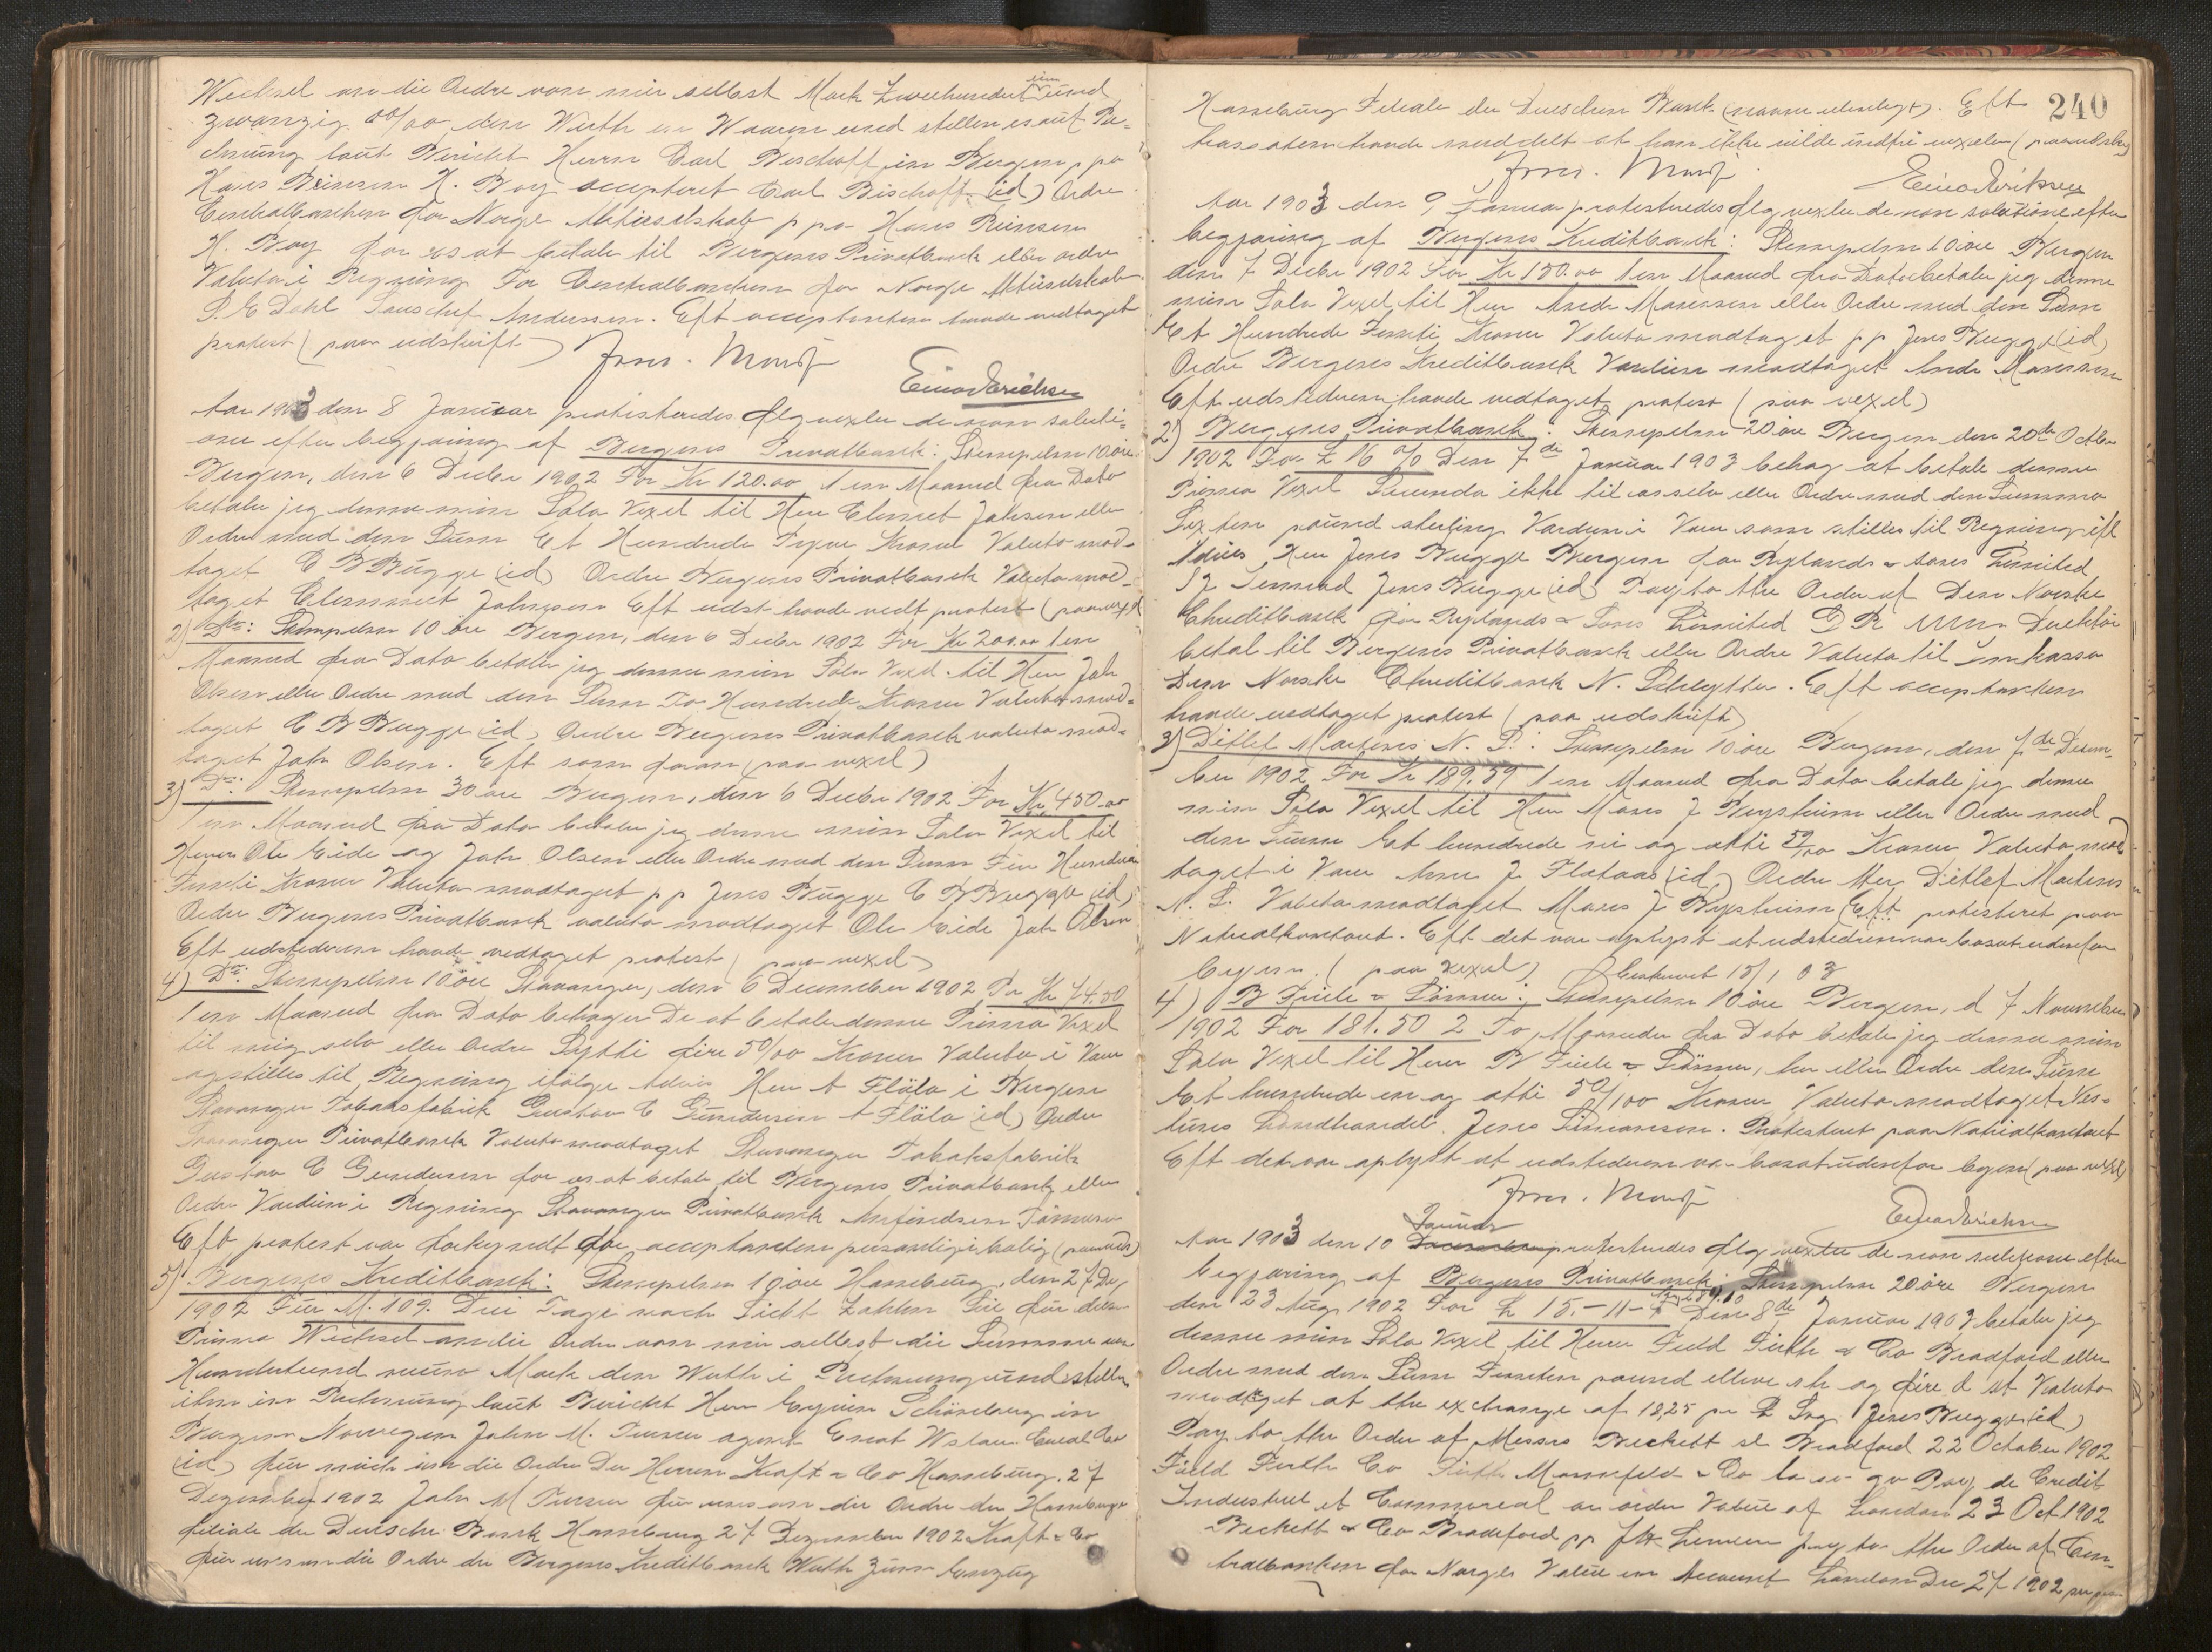 Wechsel an die Ordre von mir selbst Mark Zweihundert ein und
zwanzig 00/00 den Werth in Waaren und stellen es auf Re-
chnung laut Bericht Herrn Carl Bischoff in Bergen p pa
Hans Reinsen H. Boy accepteret Carl Bischoff (id) Ordre
Centralbanken for Norge Aktieselskab p pa Hans Reinsen
H. Boy for os at betale til Bergens Privatbank eller ordre
Valuta i Regning For Centralbanken for Norge Aktieselskab
P. E Dahl Andersen. Eft acceptanten havde vedtaget
protest (paa udskrift)
Einar Erichsen
Aar 1903 den 8 Januar protesteredes flg vexler de non soluti-
one efter begjæring af Bergens Privatbank: Stempelm 10 øre
Bergen, den 6 Decbr 1902 For Kr 120.00 1 en Maaned fra Dato
betaler jeg denne min Sola Vexel til Herr Clemet Johnsen eller
Ordre med den Sum Et Hundrede Tyve Kroner Valuta mod-
taget C B Bugge (id) Ordre Bergens Privatbank Valuta mod-
taget Clemmet Johnsen Eft udst havde vedt protest (paa vexel)
2) Do: Stempelm 10 øre Bergen, den 6 Decbr 1902 For Kr 200.00 1 en
Maaned fra Dato betaler jeg denne min Sola Vexel til Herr Joh
Olsen eller Ordre med den Sum To Hundrede Kroner Valuta mod-
taget C B Bugge (id) Ordre Bergens Privatbank valuta mod-
taget Joh Olsen. Eft som foran (paa vexel)
3) Do: Stempelm 30 øre Bergen, den 6 Decbr 1902 For Kr 450.00
1 en Maaned fra Dato betaler jeg denne min Sola Vexel til
Herrer Ole Eide og Joh Olsen eller Ordre med den Sum Fire Hundrede
Femti Kroner Valuta modtaget p p Jens Bugge C B Bugge (id)
Ordre Bergens Privatbank valuta modtaget Ole Eide Joh Olsen
Eft udstederen havde vedtaget protest (paa vexel)
4) Do: Stempelm 10 øre Stavanger, den 6 December 1902 For Kr 74.50
1 en Maaned fra Dato behager De at betale denne Prima Vexel
til mig selv eller Ordre Sytti fire 50/00 Kroner Valuta i Varer
og stilles til Regning ifølge Advis Herr A Fløla i Bergen
Stavanger Tobaksfabrik Gustav E Gundersen A Fløla (id) Ordre
Stavanger Privatbank Valuta modtaget Stavanger Tobaksfabrik
Gustav E Gundersen for os at betale til Bergens Privatbank eller
Ordre Værdien i Regning Stavanger Privatbank
Eft protest var forkyndt for acceptanten personlig i bolig (paa udsk)
5) Bergens Kreditbank: Stempelm 10 øre Hamburg, den 27 De
1902 Für M. 109. Drei Tage nach Sicht zahlen Sie für diesen
Prima Wechsel an die Ordre von mir selbst die Summe von
Hundertund neun Mark den Werth i Rechnung und stellen
ihm in Rechnung laut Bericht Herr Schönberg in
Bergen Norwegen John M. agent
(id) für mich an die Ordre Der Herren Kraft & Co Hamburg. 27
Dezember 1902 John M für uns an die Ordre der Hamburger
filiale der Deutsche Bank Hamburg 27 Dezember 1902 Kraft & Co
für uns an die Ordre der Bergens Kreditbank Werth zum Einzug
240
Hamburg Filiale der Deutschen Bank (navne ulæseligt). Eft
havde meddelt at han ikke vilde indfri vexelen (paa udskr)
Einar Erichsen
Aar 1903 den 9 Januar protesteredes flg vexler de non solutione efter
begjæring af Bergens Kreditbank: Stempelm 10 øre Bergen
den 7 Decbr 1902 For Kr 150.00 1 en Maaned fra Dato betaler jeg denne
min Sola Vexel til Herr Andr Monssen eller Ordre med den Sum
Et Hundrede Femti Kroner Valuta modtaget p p Jens Bugge (id)
Ordre Bergens Kreditbank Værdien modtaget Andr Monssen
Eft udstederen havde vedtaget protest (paa vexel)
2) Bergens Privatbank: Stempelm 20 øre Bergen den 20de Octbr
1902 For £ 16 %. Den 7de Januar 1903 behag at betale denne
Prima Vexel Secunda ikke til os selv eller Ordre med den Summa
Sexten pound sterling Værdien i Varer som stilles til Regning ifl
Advis Herr Jens Bugge Bergen for Rylands & Sons Limited
Jens Bugge (id) Pay to the Order of Den Norske
Creditbank for Rylands & Sons Limited D R Direktør
betal til Bergens Privatbank eller Ordre Valuta til Inkasso
Den Norske Creditbank N. Schlytter. Eft acceptanten
havde vedtaget protest (paa udskrift)
3) Ditlef Martens N. S.: Stempelm 10 øre Bergen, den 7de Decem-
ber 1902 For Kr 189.59 1 en Maaned fra Dato betaler jeg denne
min Sola Vexel til Herr Mons J Bergsheim eller Ordre med
den Summ Et hundrede ni og otti 59/100 Kroner Valuta mod
taget i Varer Anna J Flataas (id) Ordre Herr Ditlef Martens
N. S. Valuta modtaget Mons J Bergsheim Eft protesteret paa
Notarialkontoret. Eft det var oplyst at udstederen var bosat udenfor
byen. (paa vexel) 15/1 03
4) B Friele & Sönner: Stempelm 10 øre Bergen, d 7 November
1902 For 181.50 2 To, Maaneder fra Dato betaler jeg denne min
Sola Vexel til Herr B Friele & Sönner, her eller Ordre den Sum
Et hundrede en og otti 50/100 Kroner Valuta modtaget Ves-
tnes Landhandel. Jens Simonsen. Protesteret paa Notarialkontoret
Eft det var oplyst at udstederen var bosat udenfor byen (paa vexel)
Einar Erichsen
Januar
Aar 1903 den 10 protesteredes flg vexler de non solutione efter
begjæring af Bergens Privatbank: Stempelm 20 øre Bergen
den 23 Aug 1902 For £ 15.-11-4 Den 8de Januar 1903 betaler jeg
denne min Sola Vexel til Herrer Field Firth & Co Bradford eller
Ordre med den Sum Femten pound elleve sh og fire d st Valuta
modtaget at the exchange of 18,25 pr £ Jens Bugge (id)
Pay to the Order of Messrs Beckett Bradford 22 October 1902
Field Firth Co Pay de Credit
Industriel et Commercial or order Value of London 23 Oct 1902
Beckett & Co Bradford pp pay to the Order of Cen-
tralbanken for Norges Value in Account London Dec 27 1902